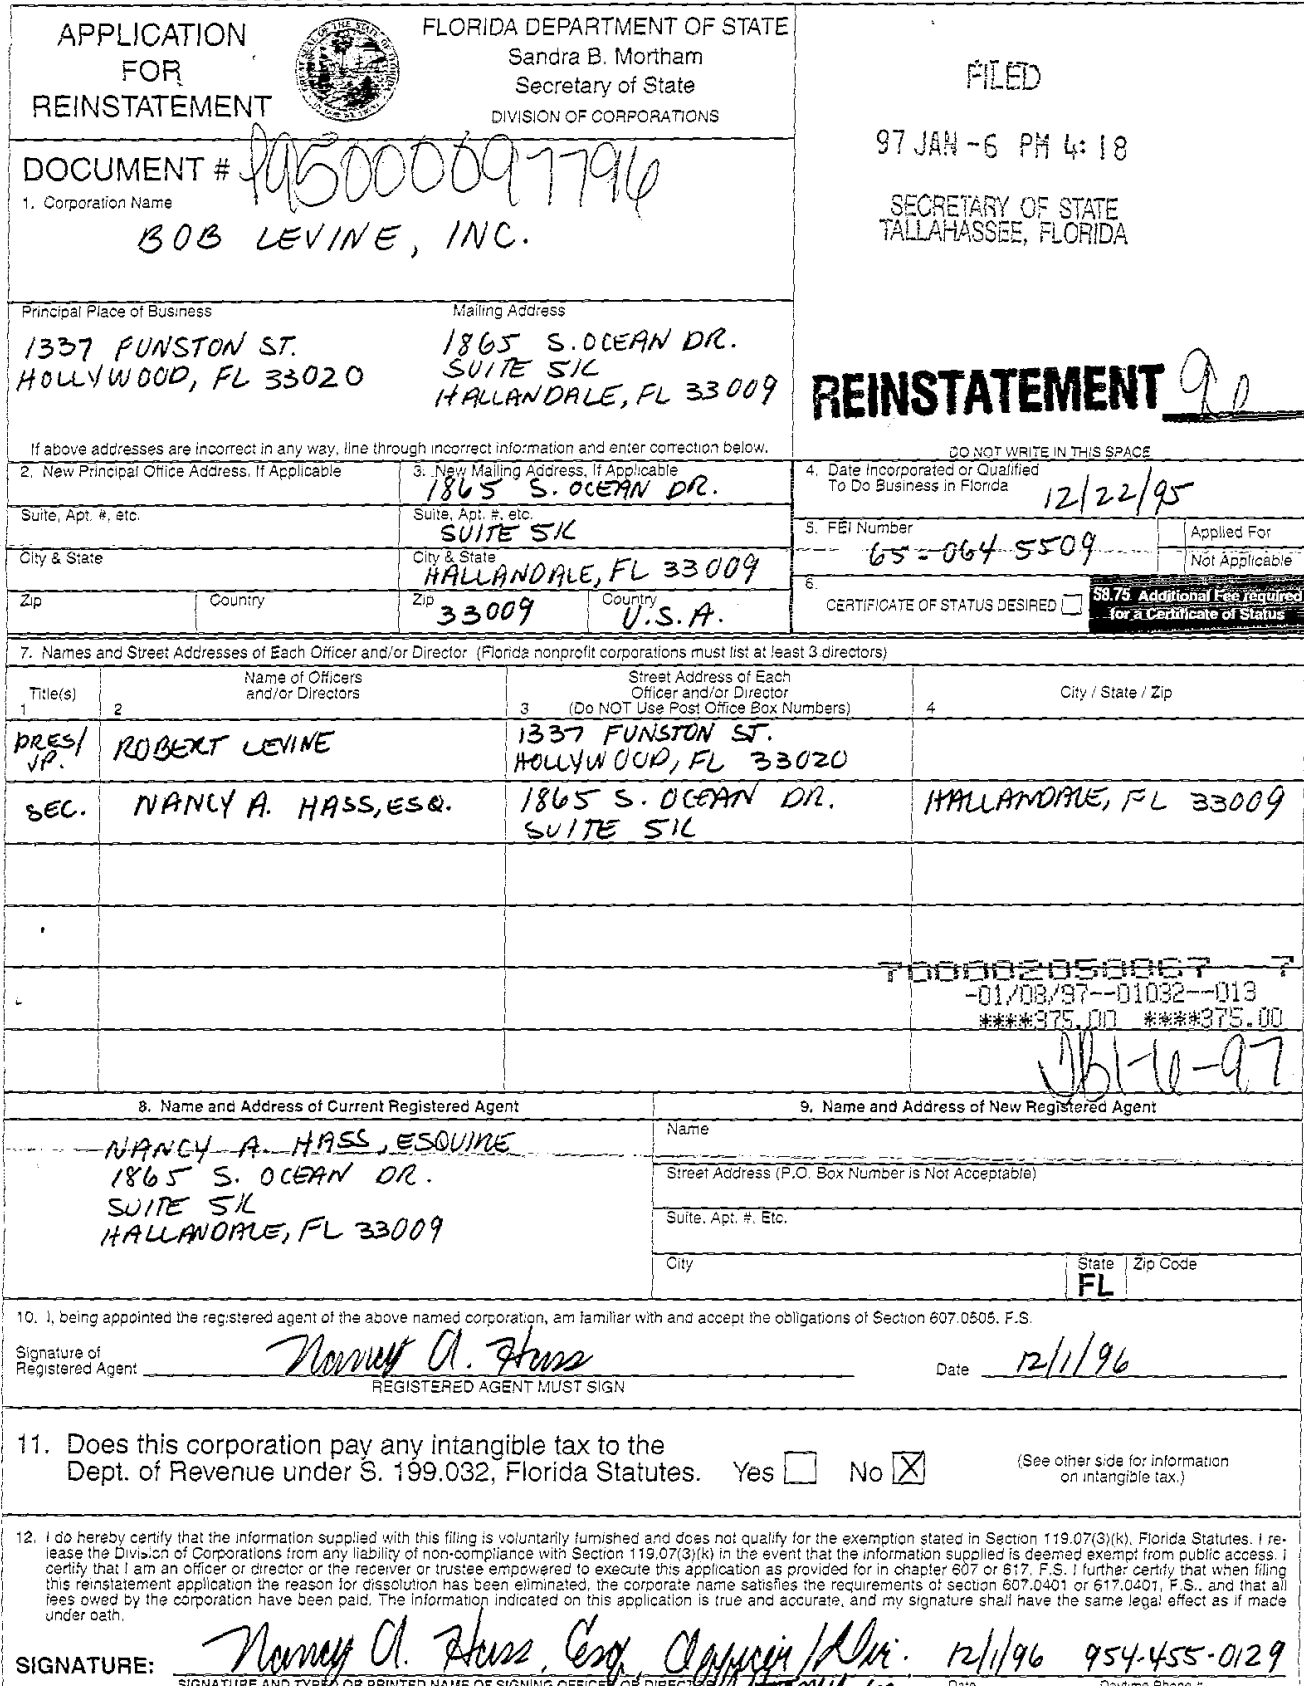 APPLICATION
FOR
REINSTATEMENT
FLORIDA DEPARTMENT OF STATE
Sandra B. Mortham
Secretary of State
DIVISION OF CORPORATIONS
FILED
97 JAN -6 PM 4:18
SECRETARY OF STATE
TALLAHASSEE, FLORIDA
DOCUMENT # P95000097796
1. Corporation Name
BOB LEVINE, INC.
Principal Place of Business
1337 FUNSTON ST.
HOLLYWOOD, FL 33020
Mailing Address
1865 S. OCEAN DR.
SUITE 5K
HALLANDALE, FL 33009
REINSTATEMENT
If above addresses are incorrect in any way, line through incorrect information and enter correction below.
DO NOT WRITE IN THIS SPACE
2. New Principal Office Address, If Applicable
Suite, Apt. #, etc.
City & State
Zip Country
3. New Mailing Address, If Applicable
1865 S. OCEAN DR.
Suite, Apt. #, etc.
SUITE 5K
City & State
HALLANDALE, FL 33009
Zip 33009 Country U.S.A.
4. Date Incorporated or Qualified
To Do Business in Florida 12/22/95
5. FEI Number
65-0645509
Applied For
Not Applicable
6.
CERTIFICATE OF STATUS DESIRED
$8.75 Additional Fee required
for a Certificate of Status
7. Names and Street Addresses of Each Officer and/or Director (Florida nonprofit corporations must list at least 3 directors)
Title(s)
1
Name of Officers
and/or Directors
2
Street Address of Each
Officer and/or Director
3 (Do NOT Use Post Office Box Numbers)
City / State / Zip
4
PRES/
VP.
ROBERT LEVINE
1337 FUNSTON ST.
HOLLYWOOD, FL 33020
SEC.
NANCY A. HASS, ESQ.
1865 S. OCEAN DR.
SUITE 5K
HALLANDALE, FL 33009
-01/08/97--01032--013
****375.00 ****375.00
1-6-97
8. Name and Address of Current Registered Agent
NANCY A. HASS, ESQUIRE
1865 S. OCEAN DR.
SUITE 5K
HALLANDALE, FL 33009
9. Name and Address of New Registered Agent
Name
Street Address (P.O. Box Number is Not Acceptable)
Suite, Apt. #, Etc.
City
State
FL
Zip Code
10. I, being appointed the registered agent of the above named corporation, am familiar with and accept the obligations of Section 607.0505, F.S.
Signature of
Registered Agent Nancy A. Hass
REGISTERED AGENT MUST SIGN
Date 12/1/96
11. Does this corporation pay any intangible tax to the
Dept. of Revenue under S. 199.032, Florida Statutes. Yes No X
(See other side for information
on intangible tax.)
12. I do hereby certify that the information supplied with this filing is voluntarily furnished and does not qualify for the exemption stated in Section 119.07(3)(k), Florida Statutes. I re-
lease the Division of Corporations from any liability of non-compliance with Section 119.07(3)(k) in the event that the information supplied is deemed exempt from public access. I
certify that I am an officer or director or the receiver or trustee empowered to execute this application as provided for in chapter 607 or 617, F.S. I further certify that when filing
this reinstatement application the reason for dissolution has been eliminated, the corporate name satisfies the requirements of section 607.0401 or 617.0401, F.S., and that all
fees owed by the corporation have been paid. The information indicated on this application is true and accurate, and my signature shall have the same legal effect as if made
under oath.
SIGNATURE: Nancy A. Hass, Esq. Officer/Dir. 12/1/96 954-455-0129
SIGNATURE AND TYPED OR PRINTED NAME OF SIGNING OFFICER OR DIRECTOR Date Daytime Phone #